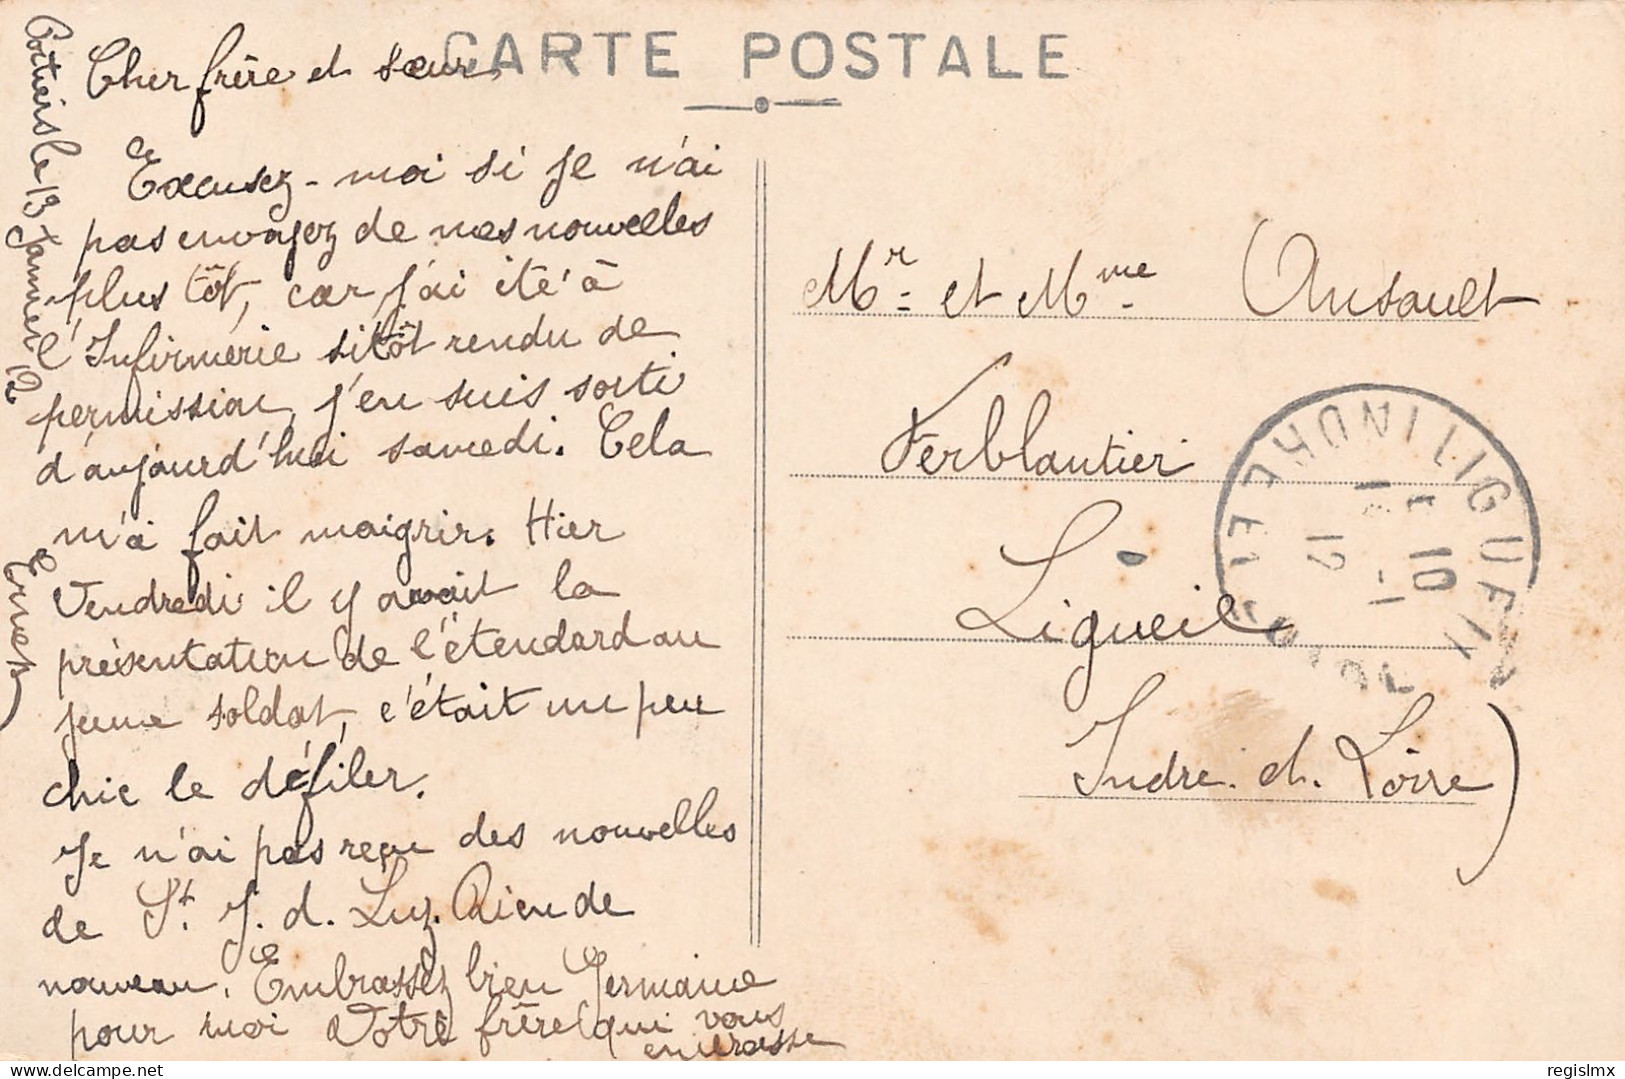 CARTE POSTALE
Poitiers le 13 Janvier 12
Cher frère et sœur
Excusez-moi si je n'ai
pas envoyez de mes nouvelles
plus tôt, car j'ai été à
l'Infirmerie sitôt rendu de
permission, j'en suis sorti
d'aujourd'hui samedi. Cela
m'a fait maigrir. Hier
Vendredi il y avait la
présentation de l'étendard au
jeune soldat, c'était un peu
chic le défiler.
Je n'ai pas reçu des nouvelles
de St. J. d. Luz. Rien de
nouveau. Embrassez bien Germaine
pour moi Votre frère qui vous
embrasse
Ernest
Mr et Mme Ansault
Ferblantier
Ligueil
Indre. et. Loire)
LIGUEIL
INDRE ET LOIRE
10
12
regislmx